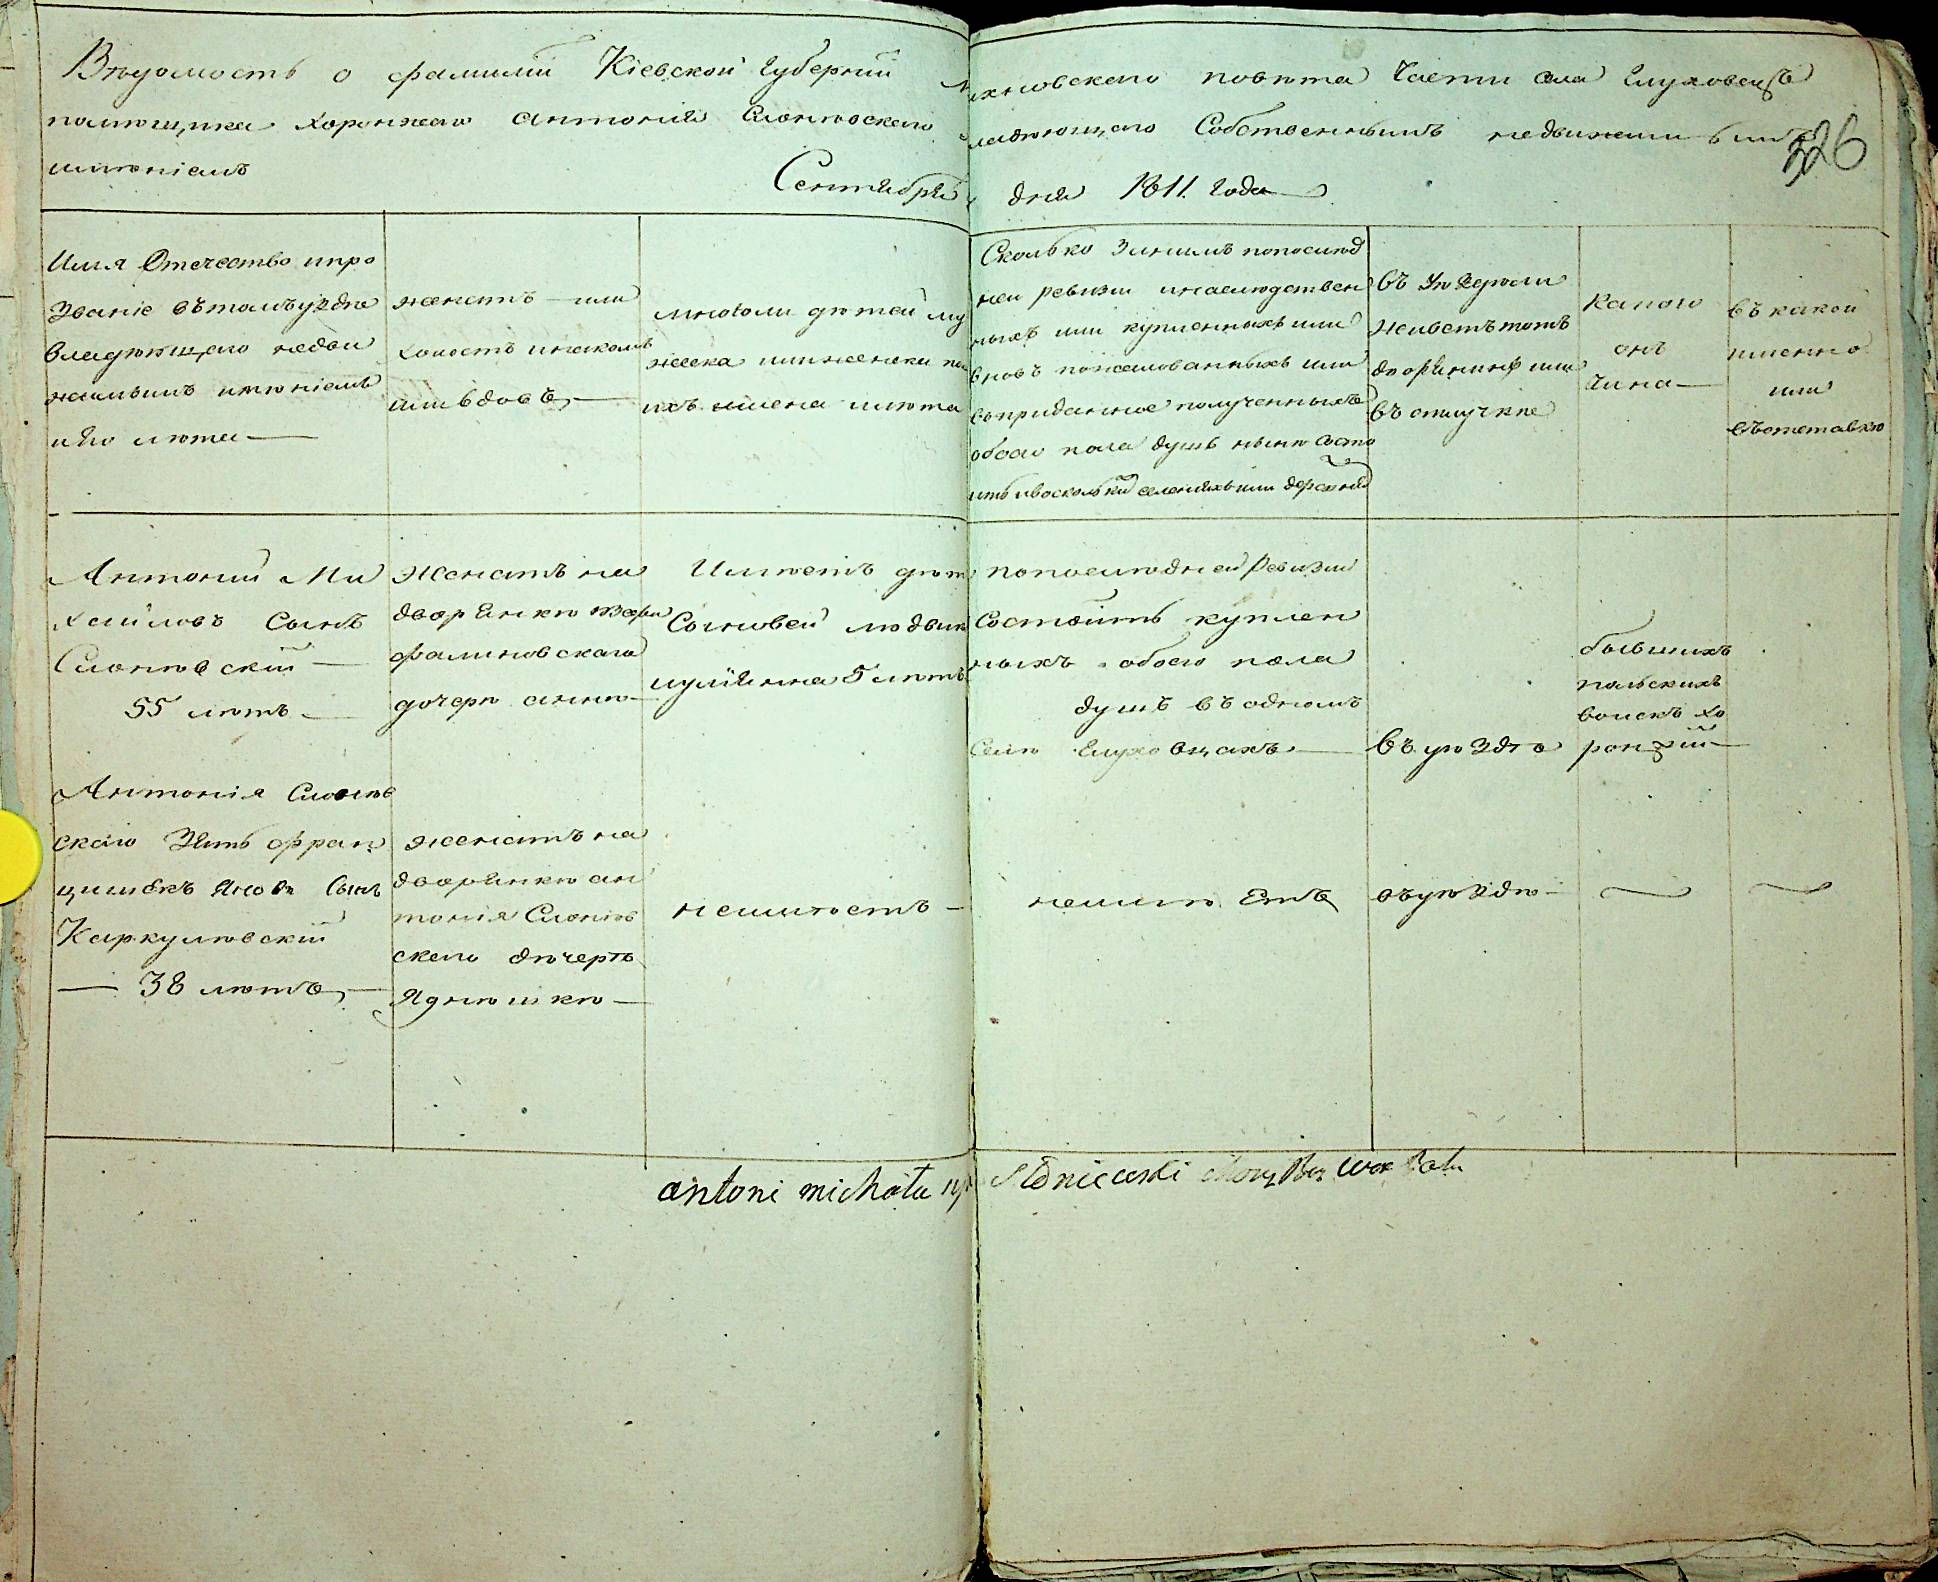 Вѣдомость о фамилій Кіевской губерній Махновскаго повѣта Части села Глуховецъ
помѣщика Хоронжаго Антонія Слонѣвскаго владѣющаго Собственнымъ недвижимымъ
имѣніемъ
Сентября дня 1811 года
326
Имя Отечество и про
Званіе вътомъ уѣздѣ
владѣющаго недви
жимымъ имѣніемъ
и Его лѣта
женатъ или
холостъ и накомъ
или вдовъ
многоли дѣтей му
жеска или женска по
ихъ имена и лѣта
Сколько Занимъ попослѣд
ней ревизіи инаслѣдствен
ныхъ или купленныхъ или
вновъ пожалованныхъ или
въприданное полученныхъ
обоего пола душъ нынѣ Состо
итъ ивосколькй селеніяхъ или деревнй
въ Уѣздѣли
живетъ тотъ
дворянинъ или
въ отлучкѣ
Какого
онъ
Чина
въ какой
именно
или
въ отставкѣ
Антоній Ми
хайловъ Сынъ
Слонѣвскій
55 лѣтъ
Женатъ на
дворянкѣ
фалиновскаго
дочерѣ аннѣ
Имѣетъ дѣт
Сыновей людвик
иулiянна 5 лѣтъ
попослѣдней Ревизіи
Состоитъ куплен
ныхъ обоего пола
душъ въ одномъ
Селѣ Глуховцахъ
въ уѣздѣ
бывшихъ
польскихъ
воискъ Хо
ронжій
Антонія Слонѣв
скаго Зять Фран
цишекъ Яновъ Сынъ
Каркулѣвскій
38 лѣтъ
женатъ на
дворянкѣ ан
тонія Слонѣв
скаго дочерѣ
Ягнѣшкѣ
неимѣетъ
неимѣетъ
въуѣздѣ
antoni michała syn Słoniewski